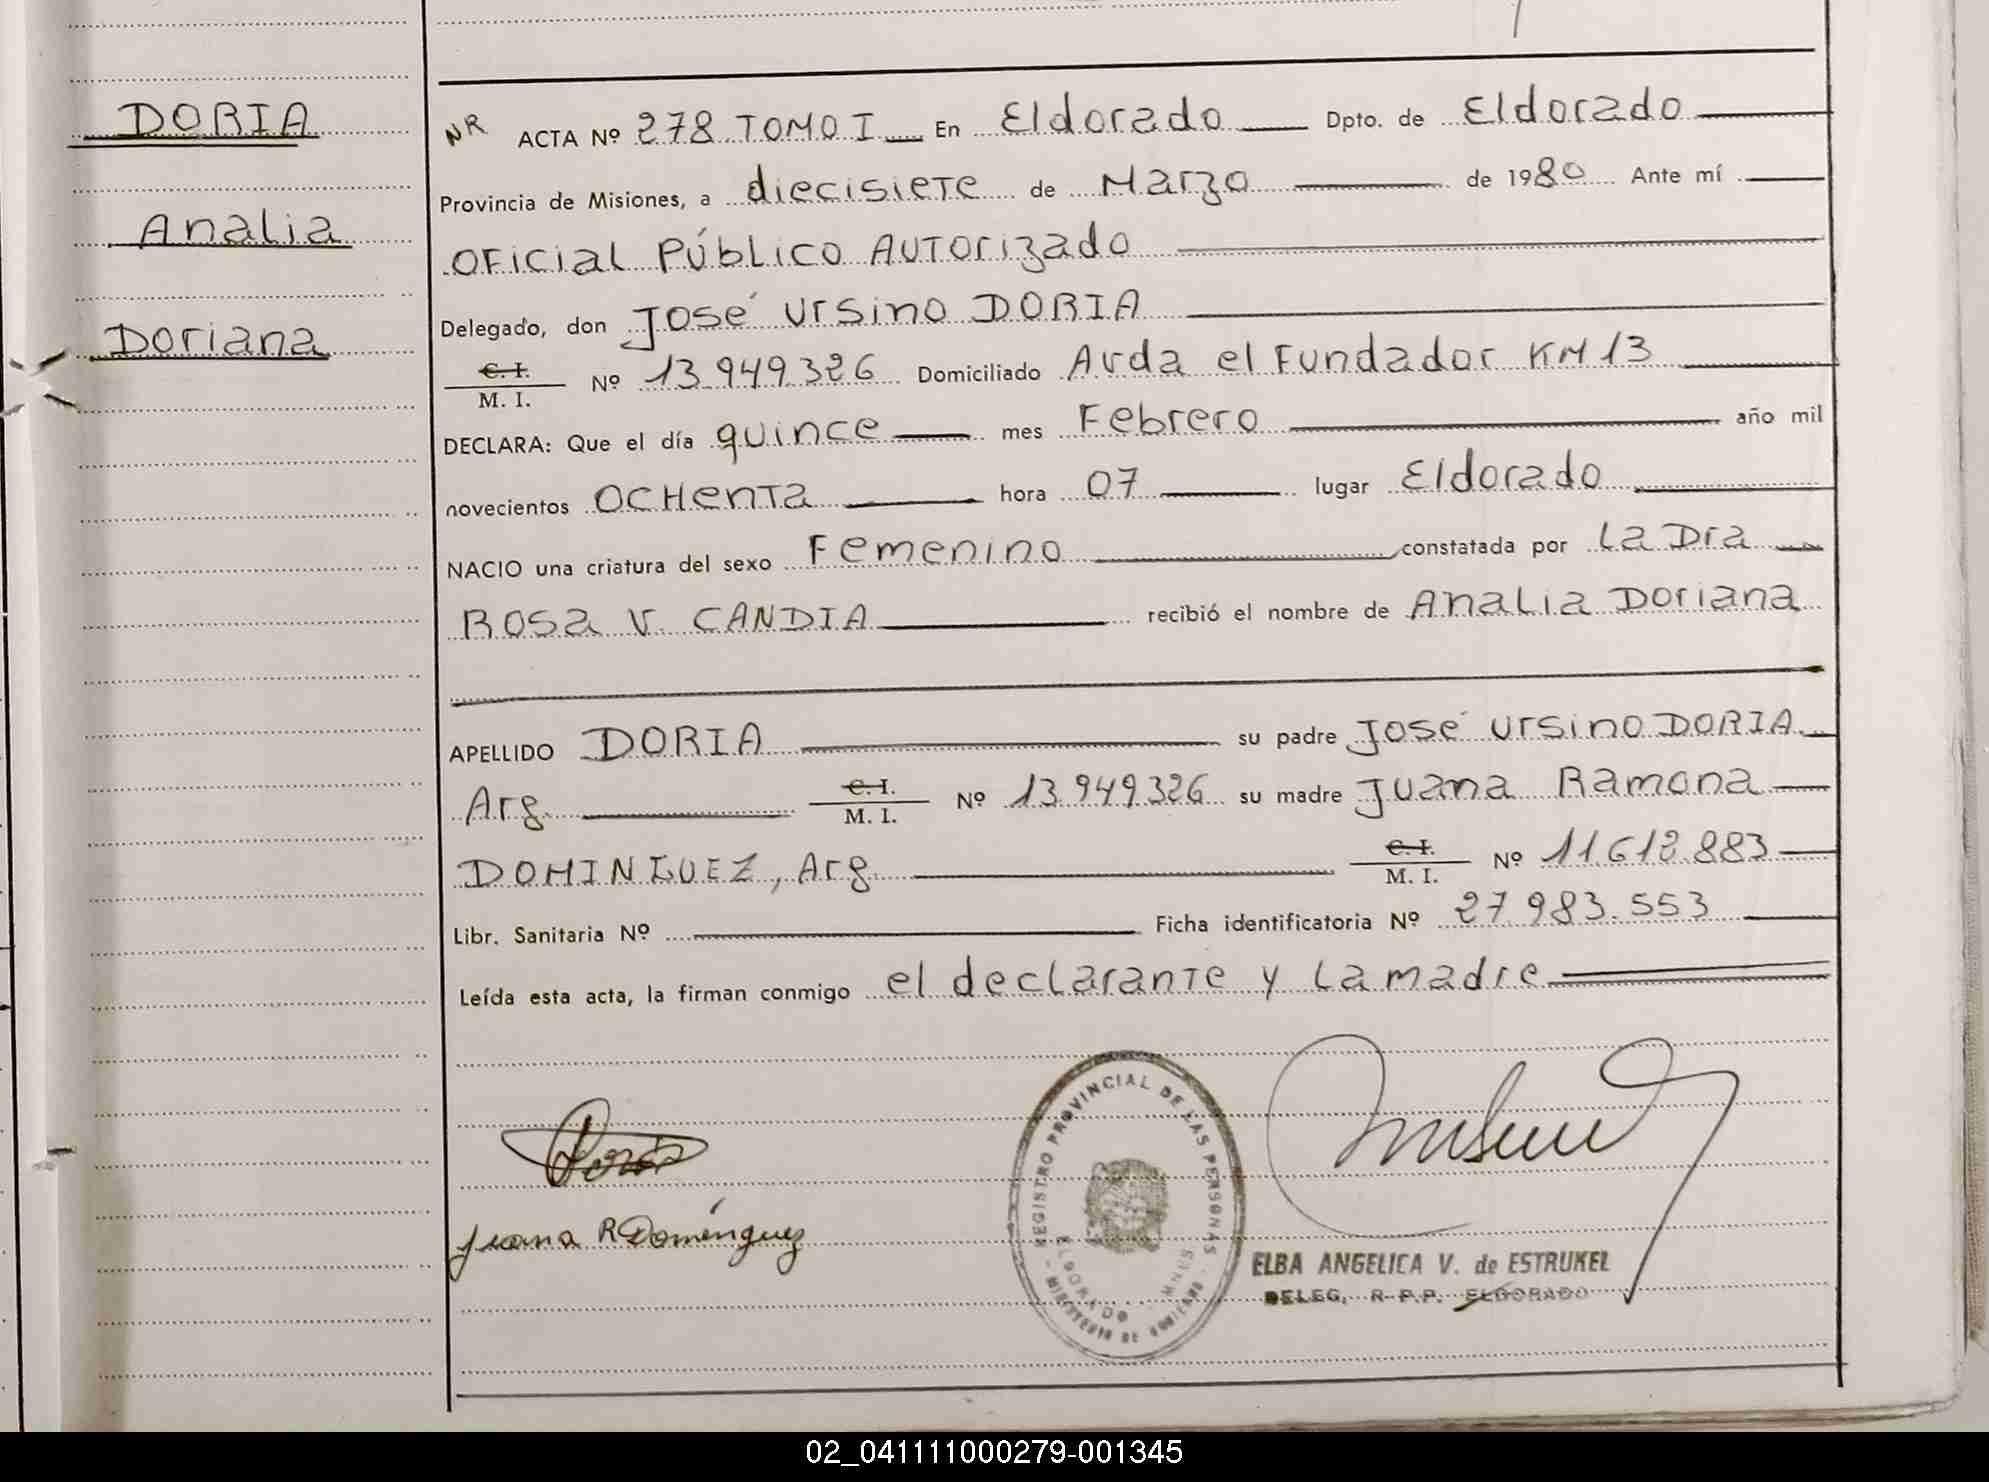 DORIA
Analia
Doriana
NR ACTA Nº 278 TOMO I En Eldorado Dpto. de Eldorado
Provincia de Misiones, a diecisiete de Marzo de 1980 Ante mí
Oficial Público Autorizado
Delegado, don José Ursino DORIA
C. I. / M. I. Nº 13.949.326 Domiciliado Avda el Fundador KM 13
DECLARA: Que el día quince mes Febrero año mil
novecientos ochenta hora 07 lugar Eldorado
NACIO una criatura del sexo Femenino constatada por La Dra
Rosa V. CANDIA recibió el nombre de Analia Doriana
APELLIDO DORIA su padre José Ursino DORIA
Arg. C. I. / M. I. Nº 13.949.326 su madre Juana Ramona
DOMINGUEZ, Arg C. I. / M. I. Nº 11.612.883
Libr. Sanitaria Nº Ficha identificatoria Nº 27.983.553
Leída esta acta, la firman conmigo el declarante y la madre
Doria
Juana R Domínguez
REGISTRO PROVINCIAL DE LAS PERSONAS
ELDORADO - MNES
MINISTERIO DE GOBIERNO
ELBA ANGELICA V. de ESTRUKEL
DELEG. R-P.P. ELDORADO
02_041111000279-001345